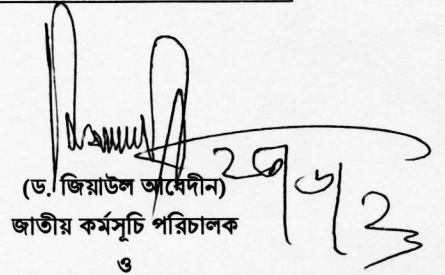 (ড. জিয়াউল আবেদীন)
জাতীয় কর্মসূচি পরিচালক
ও